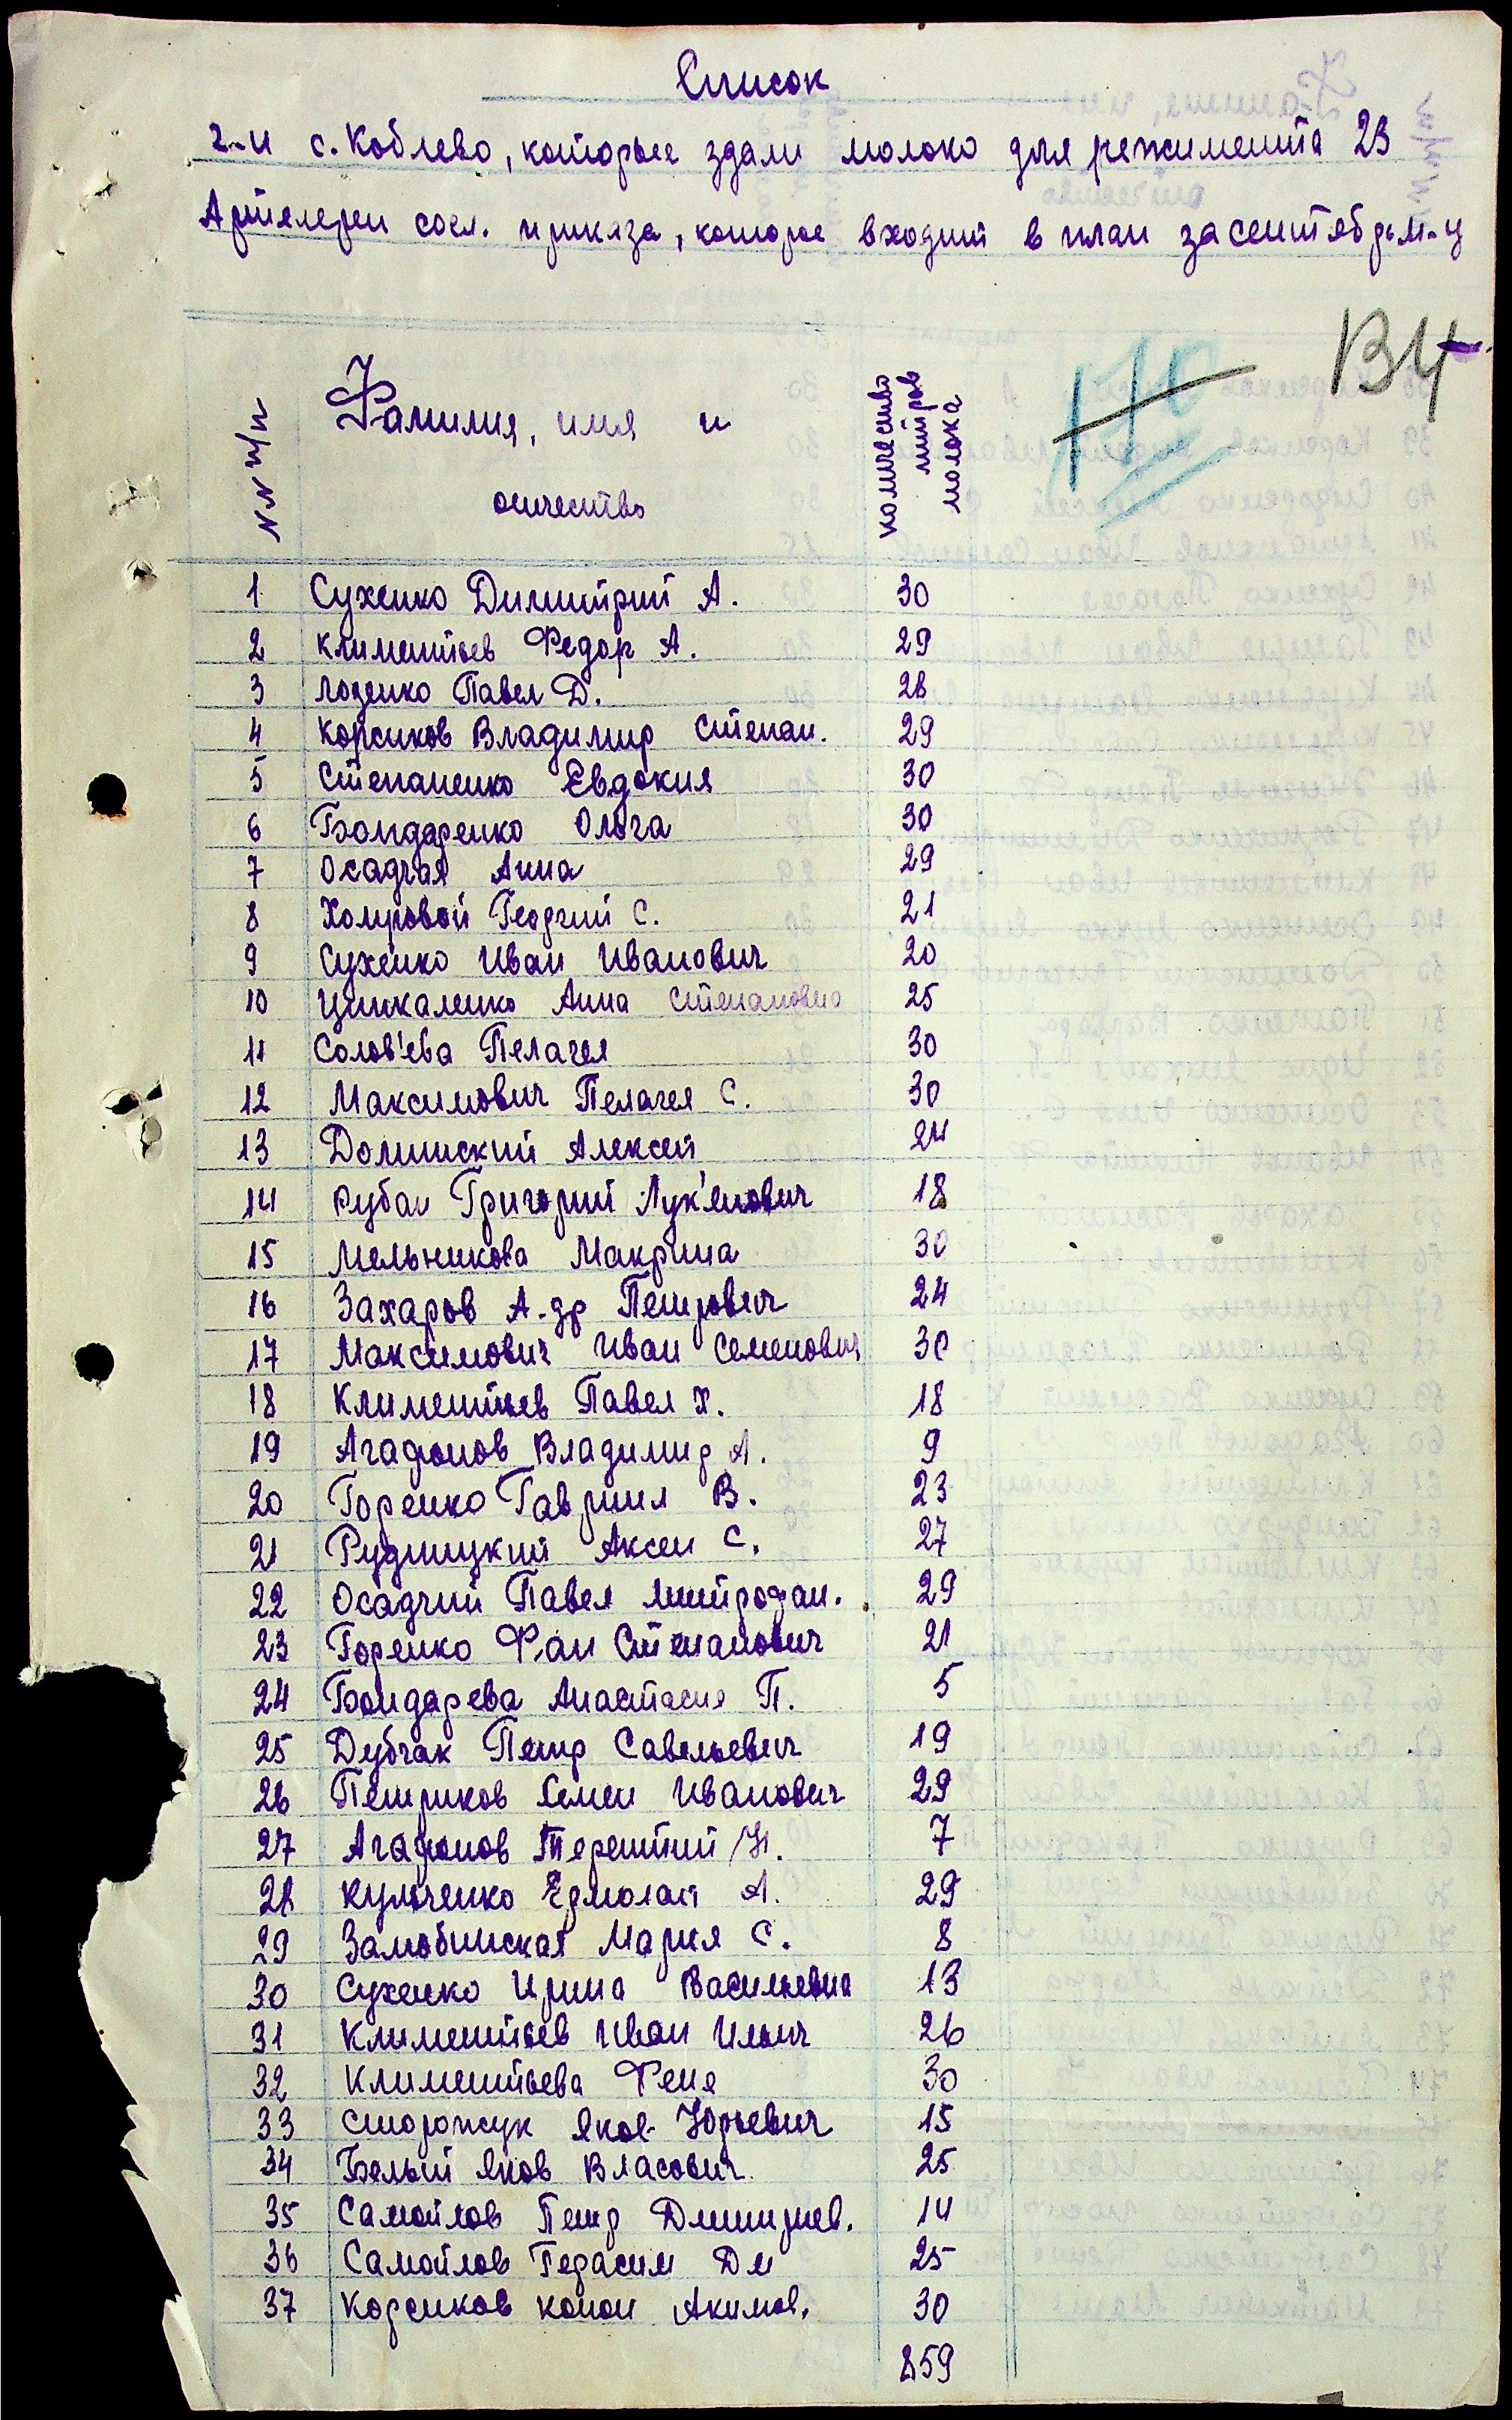 Список
г-н с. Коблево, которые здали молоко для режимента 23
Артилерии согл. приказа, которое входит в план за сентябрь м-ц
№№ п/п Фамилия, имя и отчество количество литров молока
170 ВЧ
1 Сухенко Димитрий А. 30
2 Климентьев Федор А. 29
3 Лозенко Павел Д. 28
4 Корсиков Владимир Степан. 29
5 Степаненко Евдокия 30
6 Бондаренко Ольга 30
7 Осадчая Анна 29
8 Хомровой Георгий С. 21
9 Сухенко Иван Иванович 20
10 Цинкаленко Анна Степановно 25
11 Солов'ева Пелагея 30
12 Максимович Пелагея С. 30
13 Долинский Алексей 24
14 Рубан Григорий Лук'янович 18
15 Мельникова Макрина 30
16 Захаров А-др Петрович 24
17 Максимович Иван Семенович 30
18 Климентьев Павел Х. 18
19 Агафонов Владимир А. 9
20 Горенко Гавриил В. 23
21 Рудницкий Аксен С. 27
22 Осадчий Павел Митрофан. 29
23 Горенко Фан Степанович 21
24 Бондарева Анастасия П. 5
25 Дубчак Петр Савельевич 19
26 Петриков Семен Иванович 29
27 Агафонов Терентий И. 7
28 Кульченко Ермолай А. 29
29 Замобинская Мария С. 8
30 Сухенко Ирина Васильевна 13
31 Климентьев Иван Ильич 26
32 Климентьева Феня 30
33 Сторожук Яков Юрьевич 15
34 Белый Яков Власович 25
35 Самойлов Петр Дмитриев. 14
36 Самойлов Герасим Дм 25
37 Корсиков Конон Акимов. 30
859